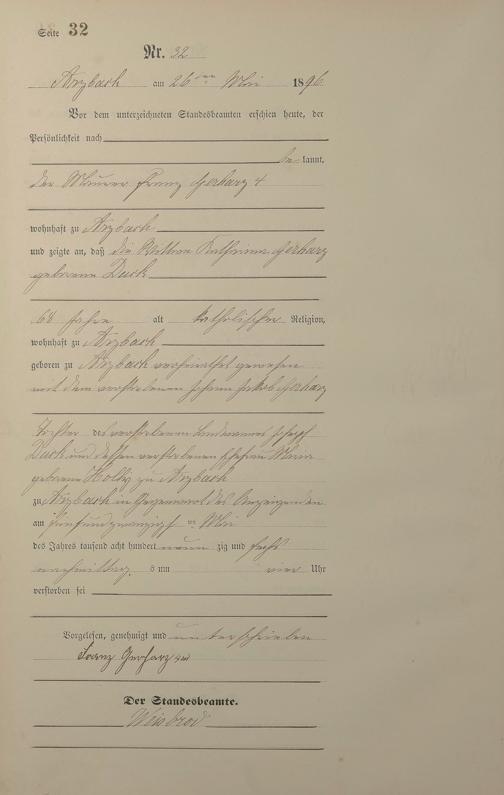 Seite 32
Nr. 32
Arzbach am 26ten Mai 1896
Vor dem unterzeichneten Standesbeamten erschien heute, der
Persönlichkeit nach
be kannt,
der Maurer Franz Gerharz 4
wohnhaft zu Arzbach
und zeigte an, daß die Wittwe Katharina Gerharz
geborene Duck
68 Jahre alt katholischer Religion,
wohnhaft zu Arzbach
geboren zu Arzbach verheirathet gewesen
mit dem verstorbenen Johann Jakob Gerharz
Tochter des verstorbenen Landmannes Joseph
Duck und dessen verstorbenen Ehefrau Maria
geborene zu Arzbach
zu Arzbach in Gegenwart des Anzeigenden
am fünfundzwanzigsten Mai
des Jahres tausend acht hundert neun zig und sechs
nachmittags um vier Uhr
verstorben sei
Vorgelesen, genehmigt und unterschrieben
Franz Gerharz 4ter
Der Standesbeamte.
Weisbrod